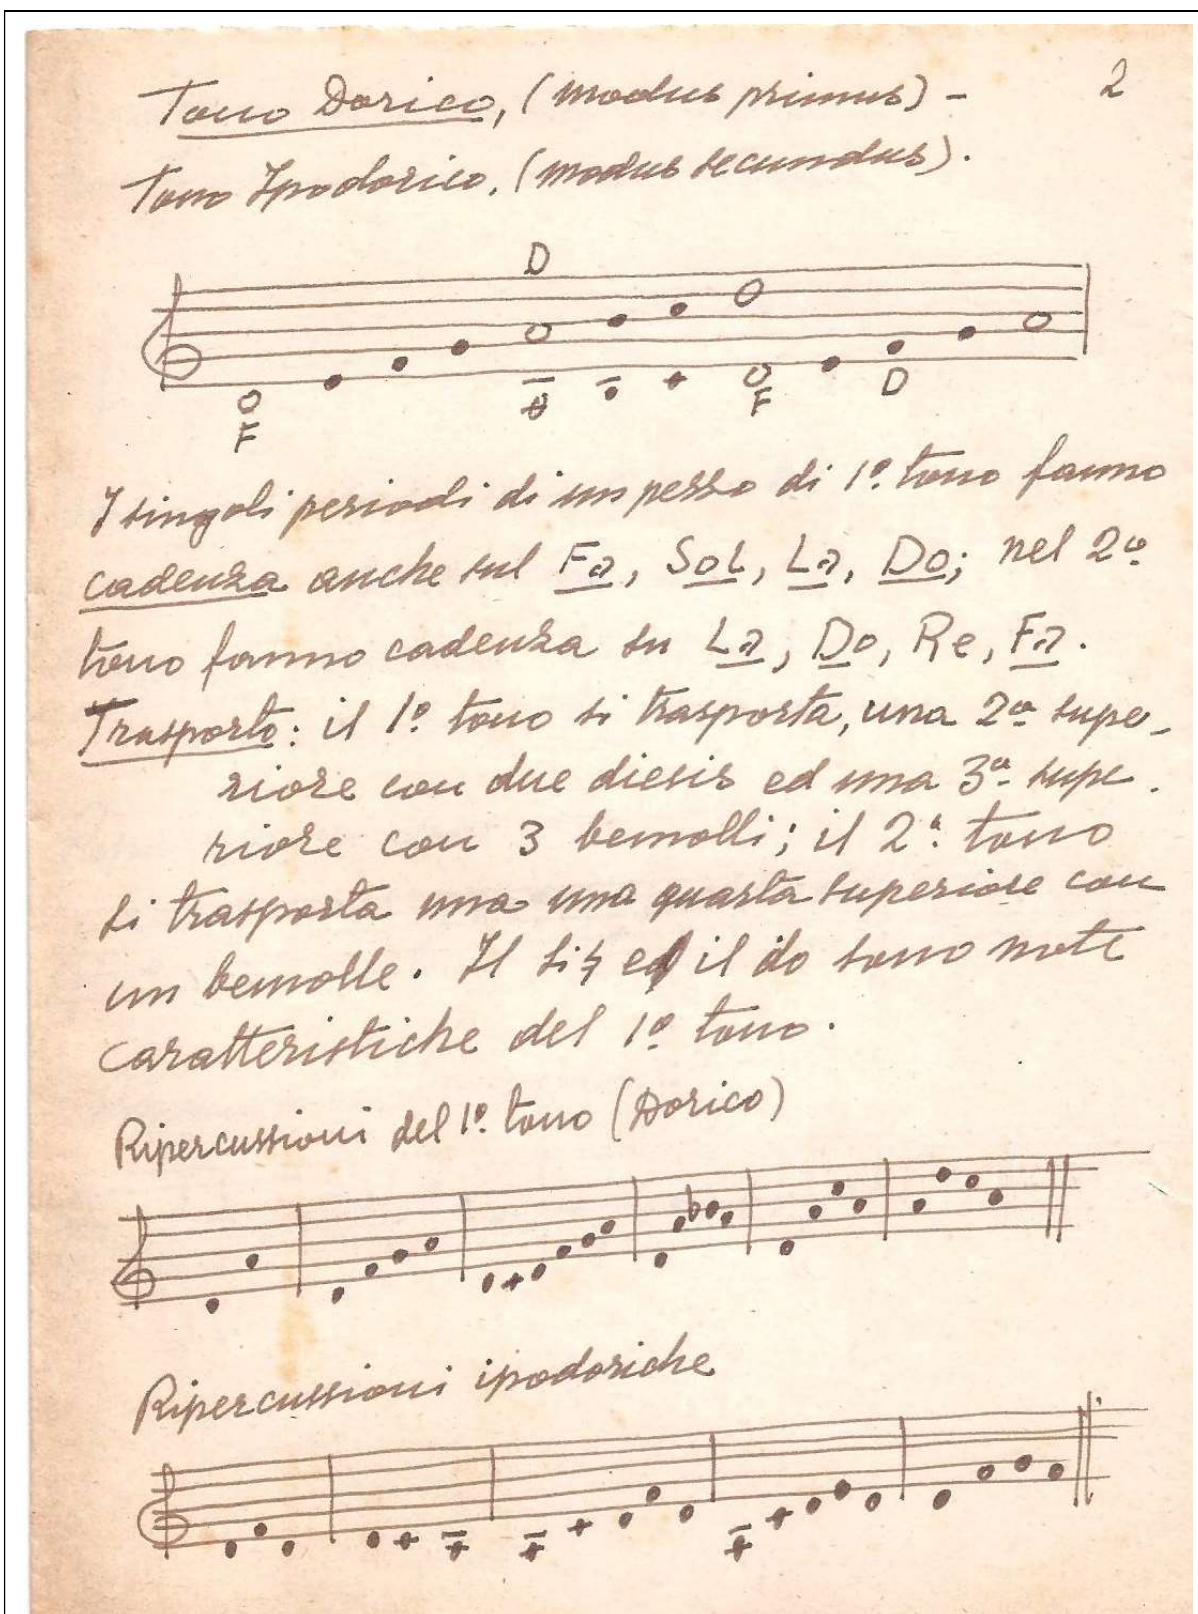 Tono Dorico, (modus primus) - 2
Tono Ipodorico, (modus secundus).
D
F
F
D
I singoli periodi di un pezzo di 1º tono fanno
cadenza anche sul Fa, Sol, La, Do; nel 2º
tono fanno cadenza su La, Do, Re, Fa.
Trasporto: il 1º tono si trasporta, una 2ª supe-
riore con due diesis ed una 3ª supe.
riore con 3 bemolli; il 2º tono
si trasporta una una quarta superiore con
un bemolle. Il si♮ ed il do sono note
caratteristiche del 1º tono.
Ripercussioni del 1º tono (Dorico)
Ripercussioni ipodoriche